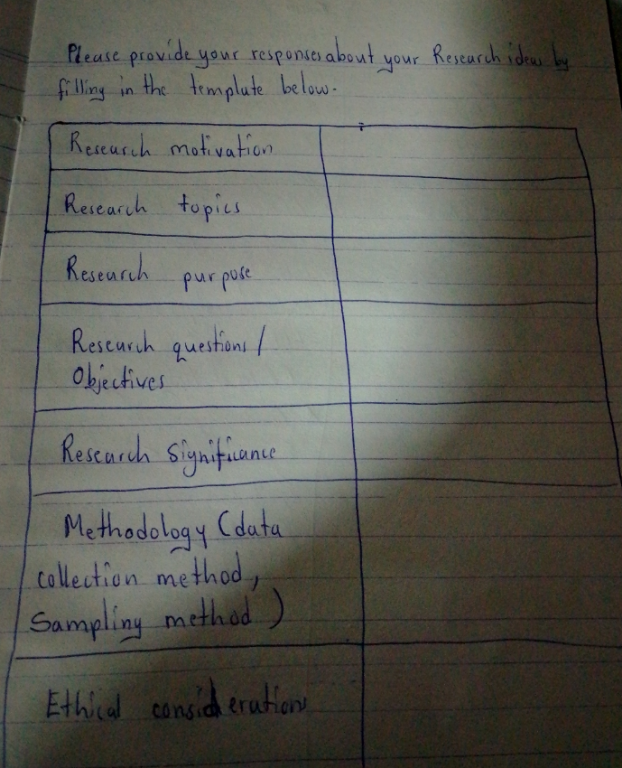 Please provide your responses about your Research ideas by
filling in the template below.
Research motivation
Research topics
Research purpose
Research questions /
Objectives
Research Significance
Methodology (data
collection method,
Sampling method)
Ethical considerations